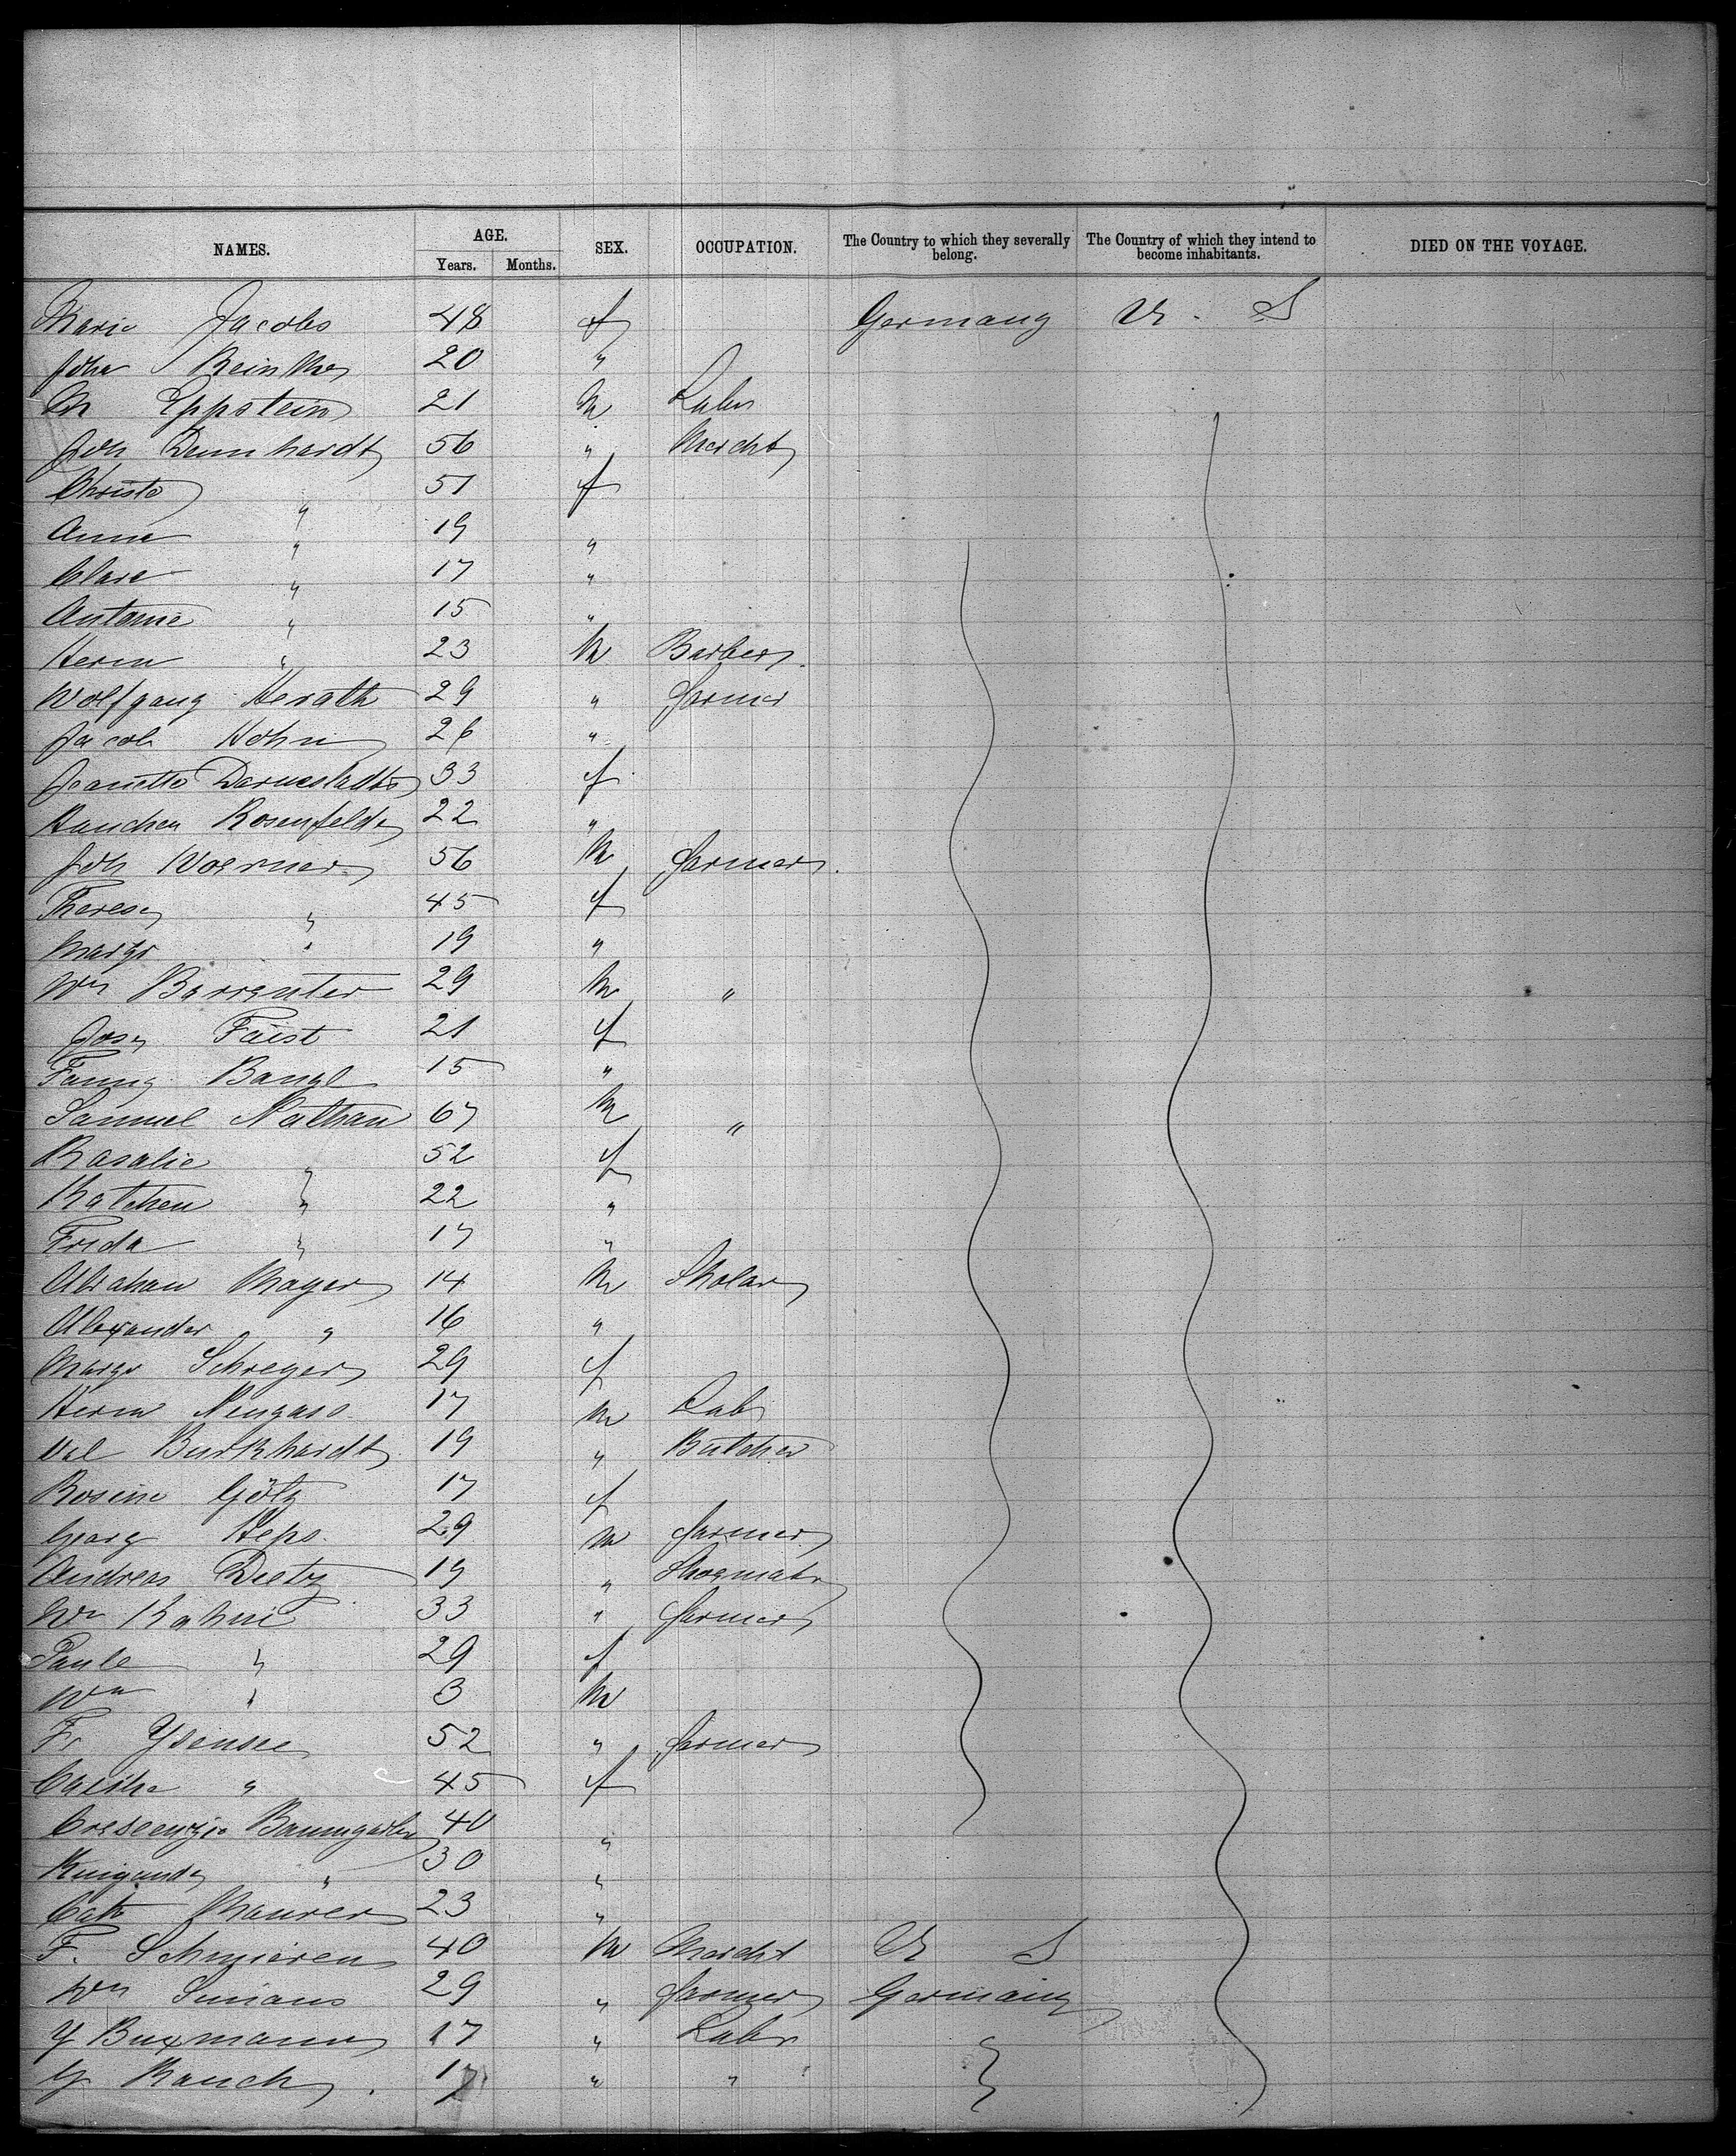 NAMES. AGE. SEX. OCCUPATION. The Country to which they severally belong. The Country of which they intend to become inhabitants. DIED ON THE VOYAGE.
Years. Months.
Marie Jacobs 48 f Germany U. S
Joha Reinther 20 "
M Eppstein 21 M Labr
Joh Dennhardt 56 " Mercht
Christe " 51 f
Anna " 19 "
Clara " 17 "
Antonie " 15 "
Herm " 23 M Barber
Wolfgang Herath 29 " farmer
Jacob Hohn 26 "
Jeanette Darmstadter 33 f
Hanchen Rosenfelder 22 "
Joh Woerner 56 M farmer
Therese " 45 f
Margr " 19 "
Wm Barrenter 29 M "
Josy Faist 21 f
Fanny Bangl 15 "
Samuel Nathan 67 M "
Rosalie " 52 f
Katchen " 22 "
Frida " 17 "
Abraham Mayer 14 M Skolar
Alexander " 16 "
Margr Schreyer 29 f
Herm Neugass 17 M Lab
Val Burkhardt 19 " Butcher
Rosine Götz 17 f
Georg Heps 29 M farmer
Andreas Dietz 19 " Shoemakr
Wm Kahni 33 " farmer
Paule " 29 f
Wm " 3 M
Fr Ysensee 52 " farmer
Caithe " 45 f
Crescenzie Baumgarten 40 "
Kuigunde " 30 "
Cath Maurer 23 "
F. Schmieren 40 M Mercht U S
Wm Simans 29 " farmer Germany
Y Buxmann 17 " Labr
G Rauch 17 " "